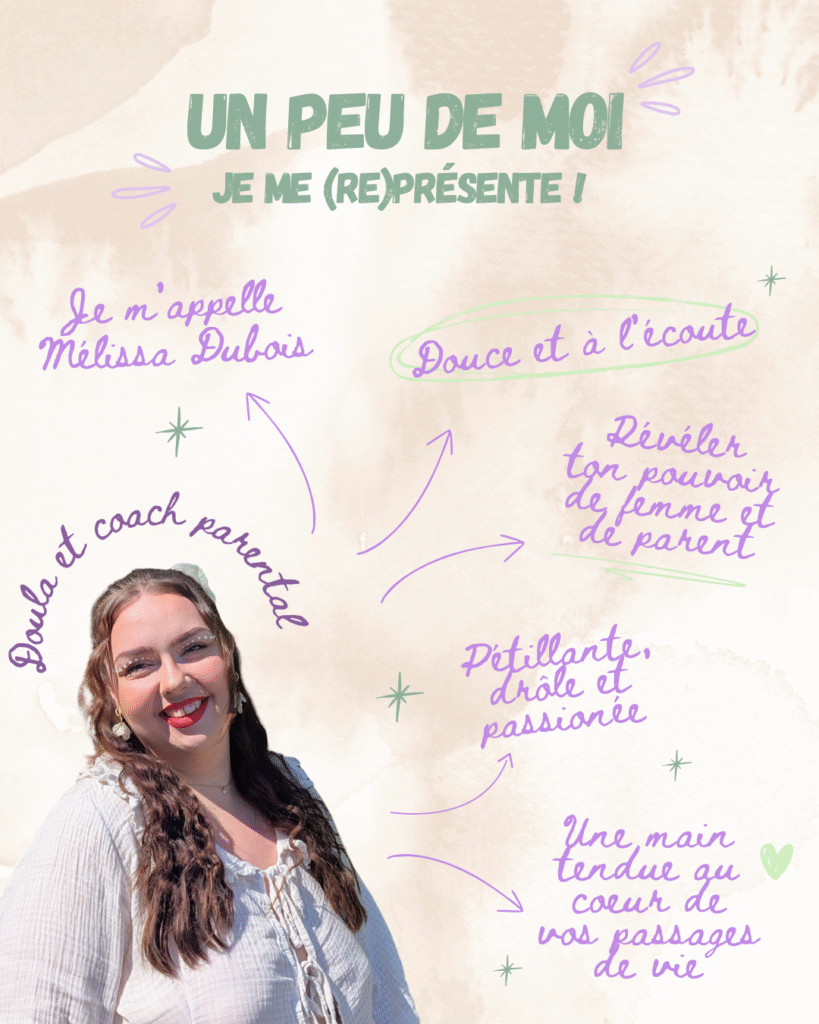 UN PEU DE MOI
JE ME (RE)PRÉSENTE !
Je m'appelle
Mélissa Dubois
Douce et à l'écoute
Révéler
ton pouvoir
de femme et
de parent
Doula et coach parental
Pétillante,
drôle et
passionée
Une main
tendue au
coeur de
vos passages
de vie